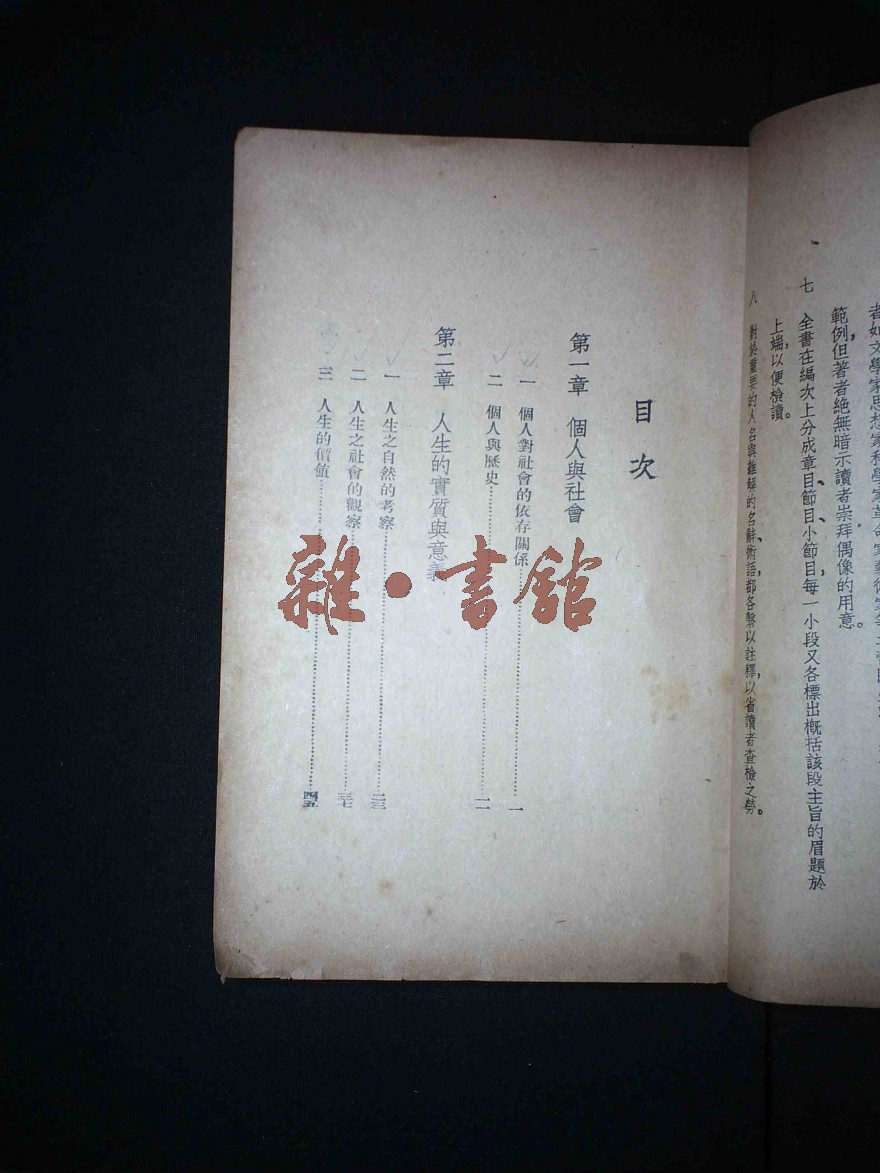 範例，但著者絕無暗示讀者崇拜偶像的用意。
七　全書在編次上分成章目、節目、小節目，每一小段又各標出概括該段主旨的眉題於
上端，以便檢讀。
八　對於重要的人名與難解的名辭、術語，都各繫以註釋，以省讀者查檢之勞。
目次
第一章　個人與社會
一　個人對社會的依存關係……一
二　個人與歷史……一一
第二章　人生的實質與意義
一　人生之自然的考察……二三
二　人生之社會的觀察……三七
三　人生的價値……四五
雜·書館